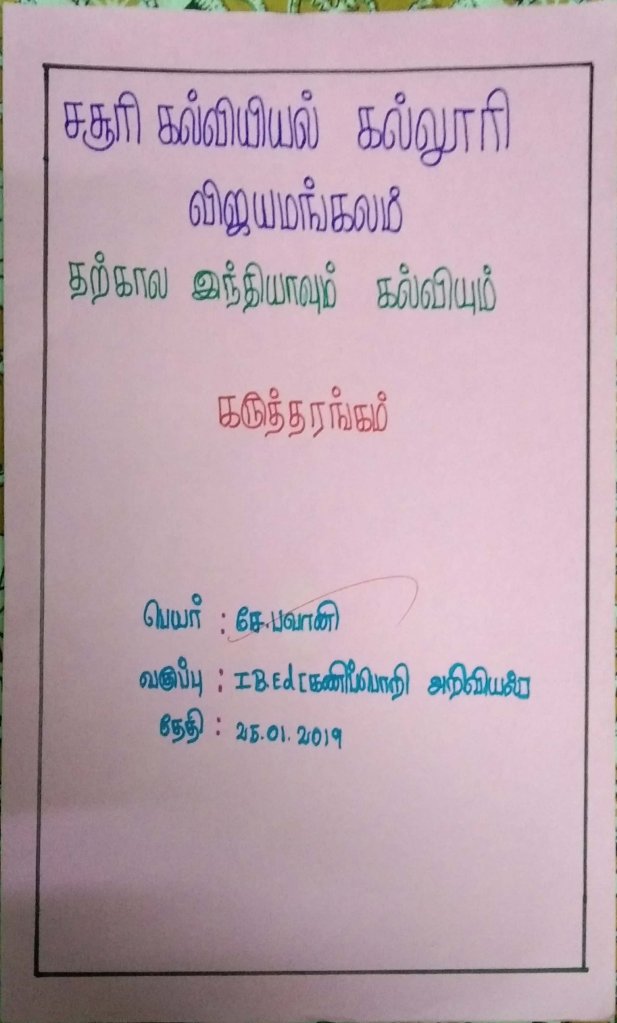 சசூரி கல்வியியல் கல்லூரி
விஜயமங்கலம்
தற்கால இந்தியாவும் கல்வியும்
கருத்தரங்கம்
பெயர் : சே.பவானி
வகுப்பு : I B.Ed [கணிப்பொறி அறிவியல்]
தேதி : 25.01.2019